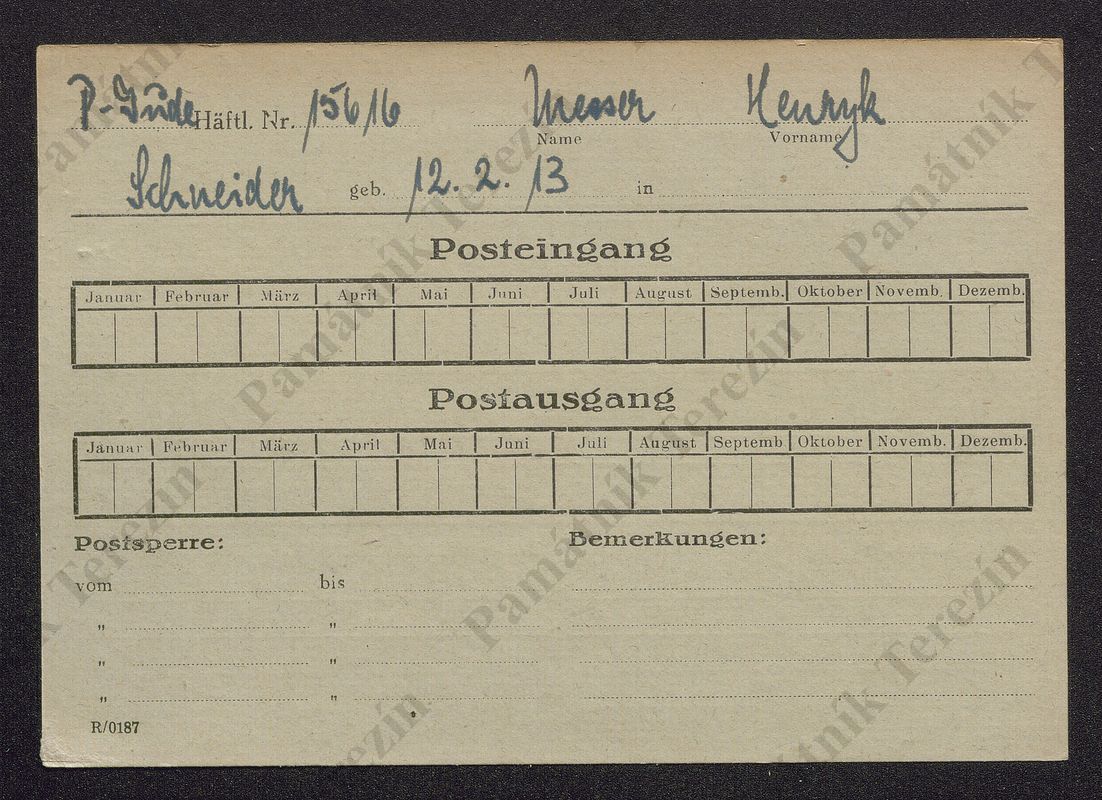 P-Jude Häftl. Nr. 15616 Messer Henryk
Name Vorname
Schneider geb. 12. 2. 13 in
Posteingang
Januar Februar März April Mai Juni Juli August Septemb. Oktober Novemb. Dezemb.
Postausgang
Januar Februar März April Mai Juni Juli August Septemb Oktober Novemb. Dezemb.
Postsperre: Bemerkungen:
vom bis
„ „
„ „
„ „
R/0187
Památník Terezín